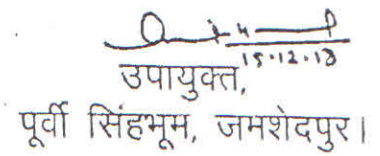 15.12.18
उपायुक्त,
पूर्वी सिंहभूम, जमशेदपुर।